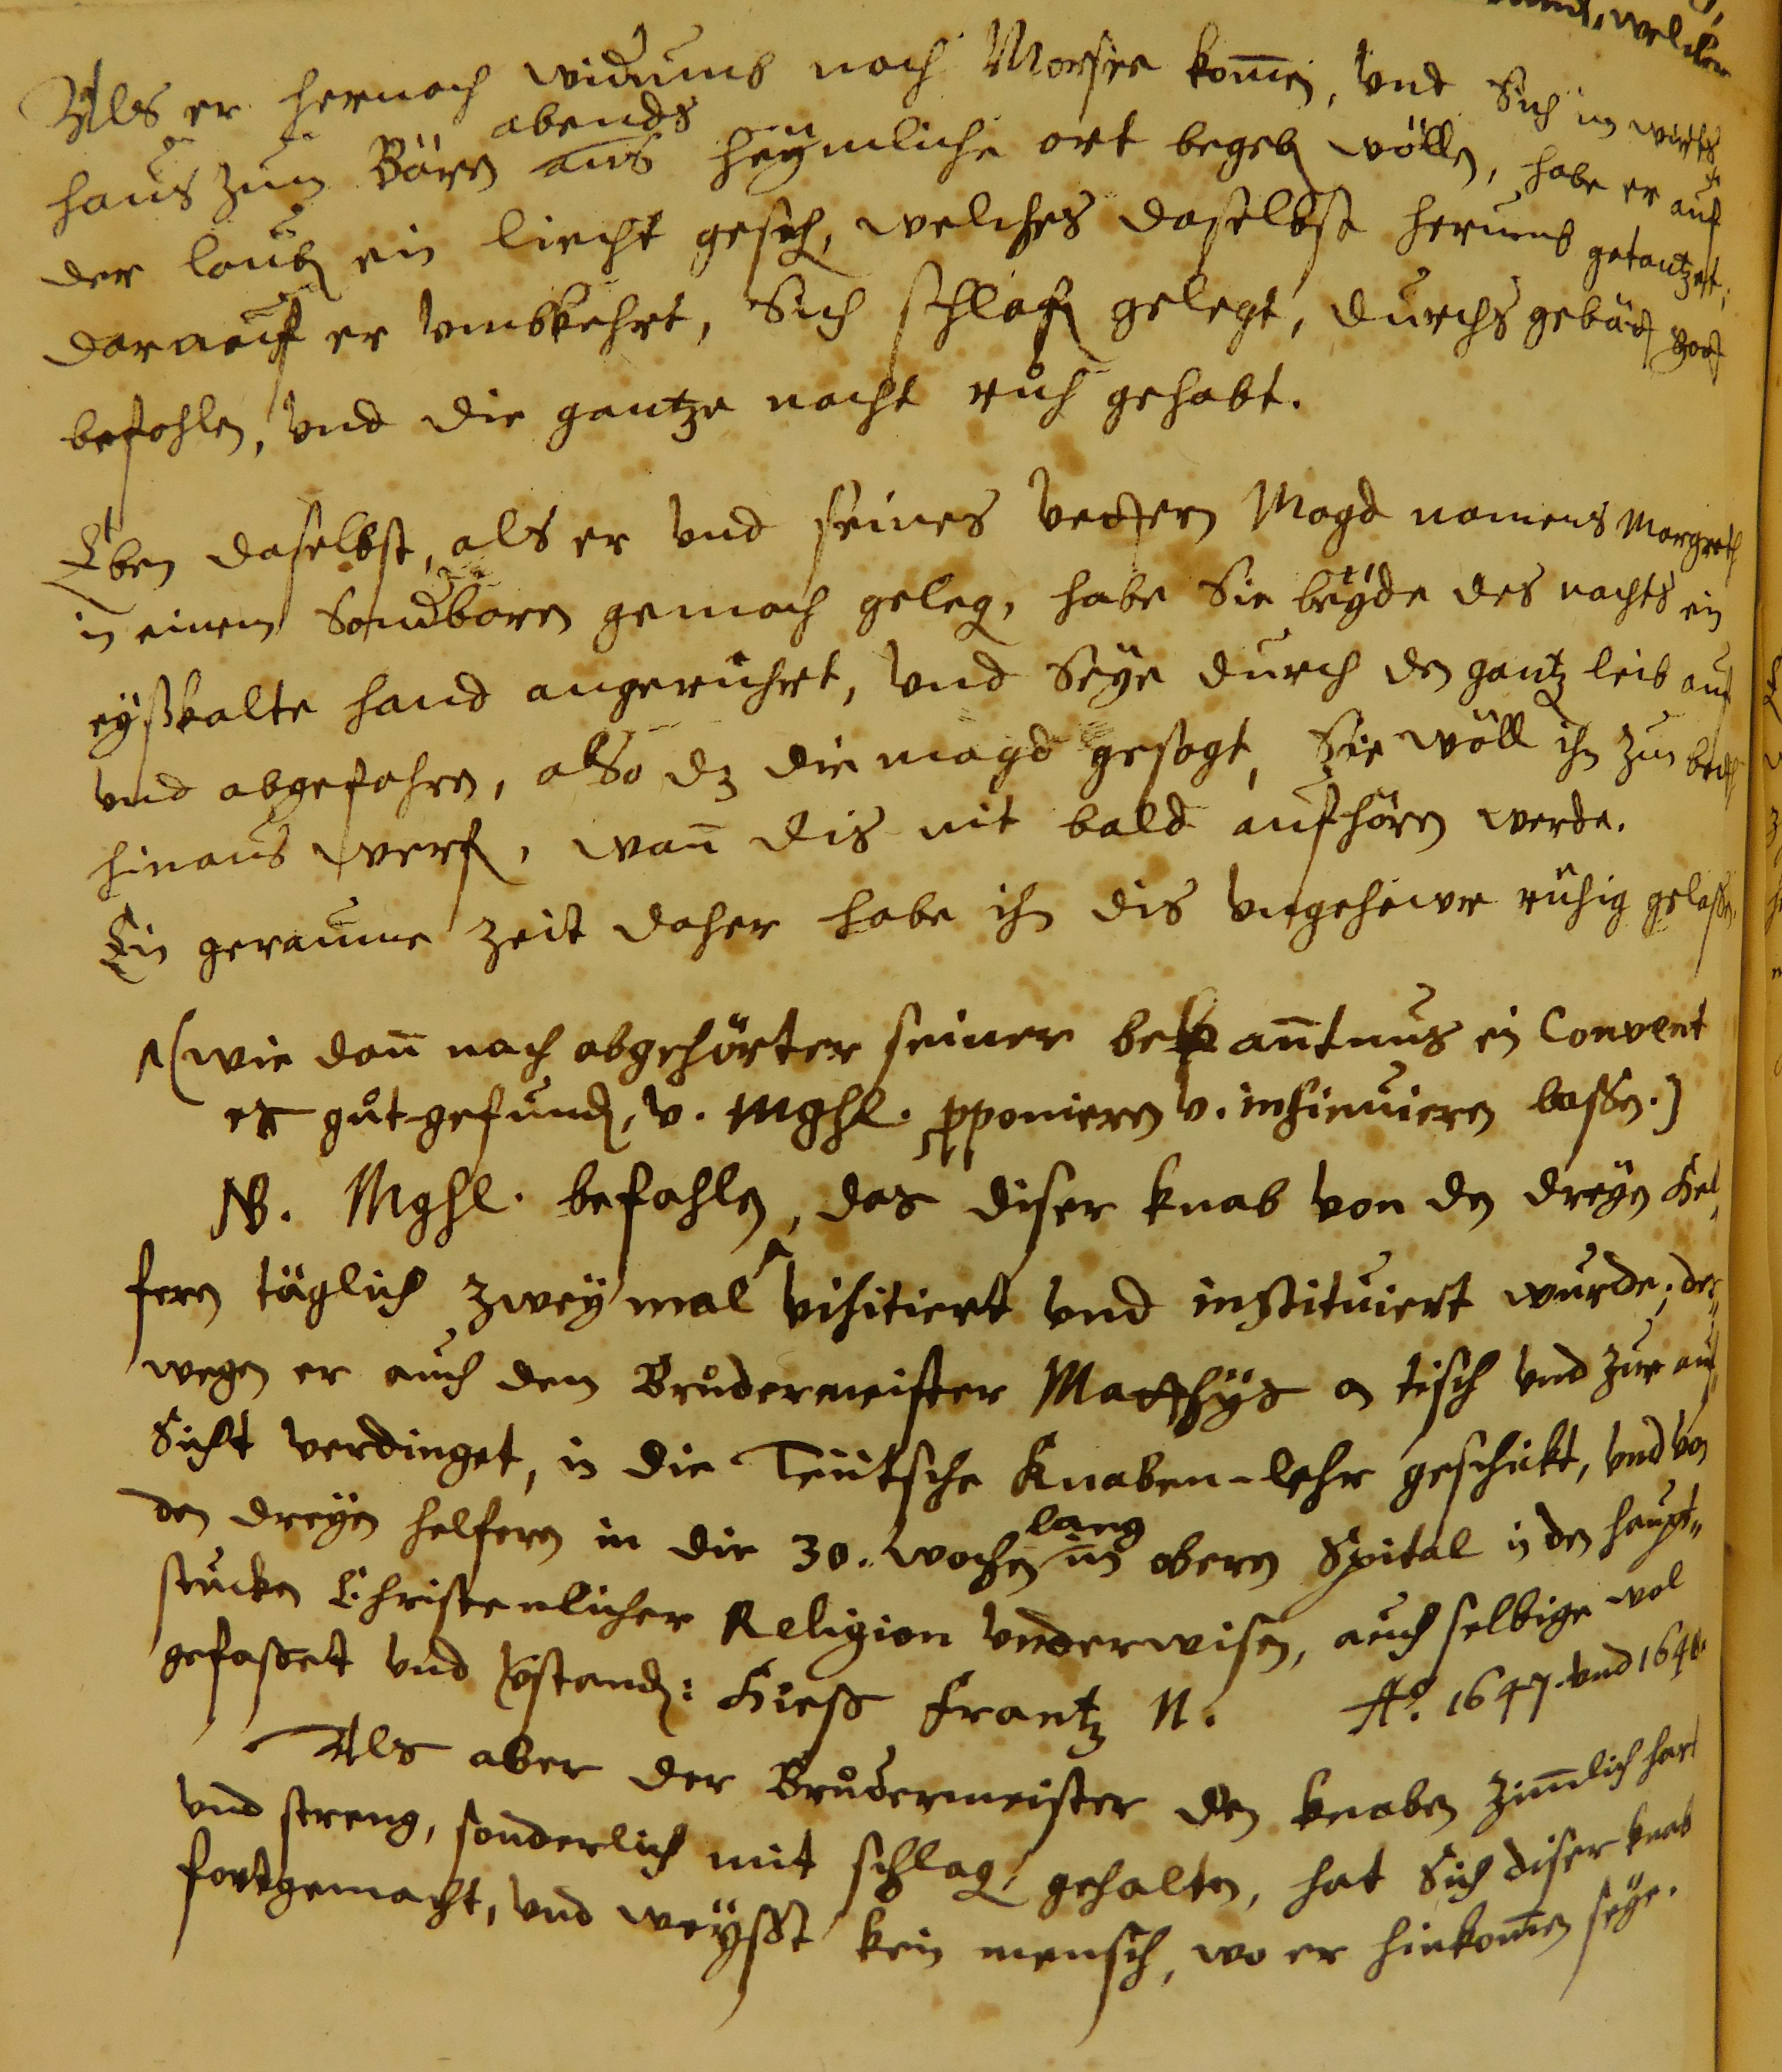 welchen
Als er hernach widumb nach Morsee kom̄en, vnd Sich im wirts
haus zum Bären abends ans heÿmliche ort begeben wöllen, habe er auf
der lauben ein liecht gesehen, welches daselbst herumb getantzet;
darauf er vmbkehrt, Sich schlafen gelegt, durchs gebätt Gott
befohlen, vnd die gantze nacht růh gehabt.
Eben daselbst, als er vnd seines Vetters Magd namens Margreth
in einem Sonderbaren gemach gelegen, habe Sie beÿde des nachts ein
eÿßkalte hand angerührt, vnd Seÿe durch den gantzen leib auf
vnd abgefahren, also dz die magd gesagt, Sie wöll ihn zum beth
hinaus werfen, wan̄ dis nit bald aufhören werde.
Ein geraume zeit daher habe ihn dis vngeheure rühig gelassen.
(wie dan̄ nach abgehörter seiner bekan̄tnus ein Convent
es gůt gefunden, v. Mghl. proponieren v. insinuieren lassen.)
NB. Mghl. befohlen, das diser knab von den dreÿen Hel,
feren täglich zweÿmal visitiert vnd instituiert wurde; des,,
wegen er auch dem Brůdermeister Matthÿs an tisch vnd zur auf,
Sicht verdinget, in die Teütsche Knaben-lehr geschickt, vnd von
den dreÿen helferen in die 30. wochen lang im oberen Spital in den haupt,,
stucken Christenlicher Religion vnderwisen, auch selbige wol
gefasset vnd verstanden: Hiess Frantz N. Aº. 1647. vnd 1648.
Als aber der Brůdermeister den knaben zim̄lich hart
vnd streng, sonderlich mit schlagen gehalten, hat Sich diser knab
fortgemacht, vnd weÿsst kein mensch, wo er hinkom̄en seÿe.